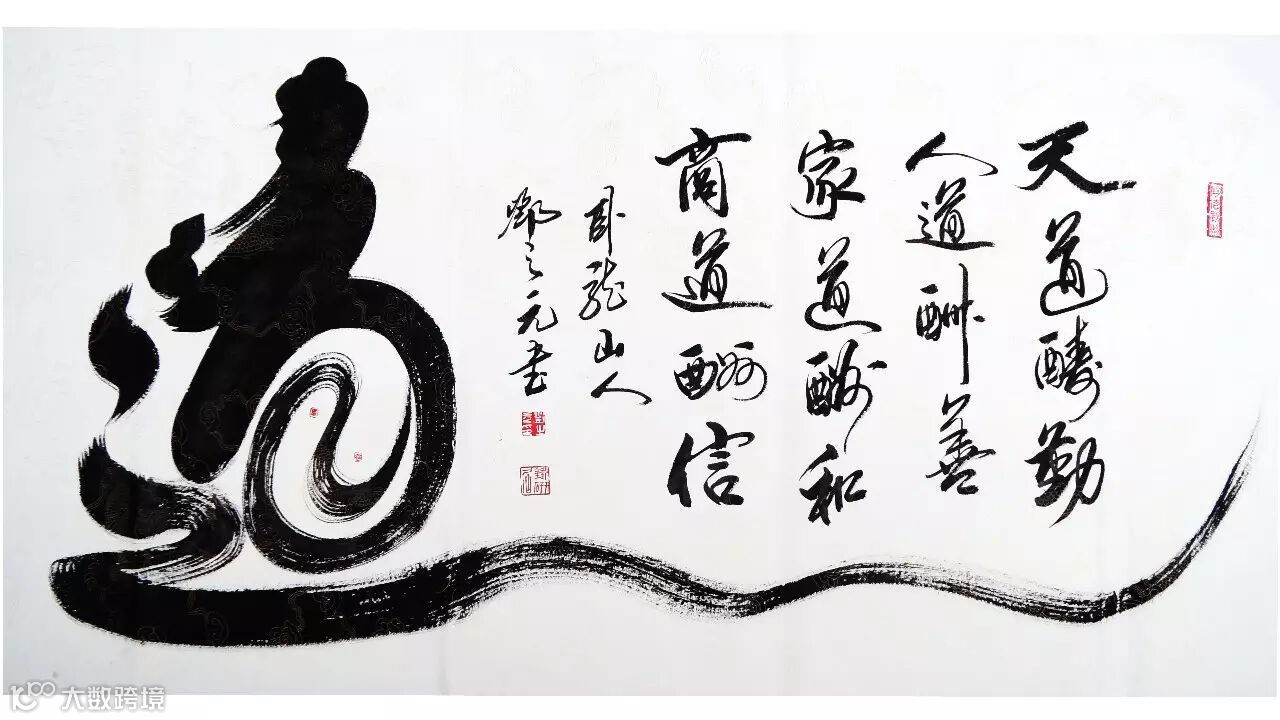 天道醻勤
人道酬善
家道酬和
商道酬信
卧龍山人
鄧之元书
道
大数跨境